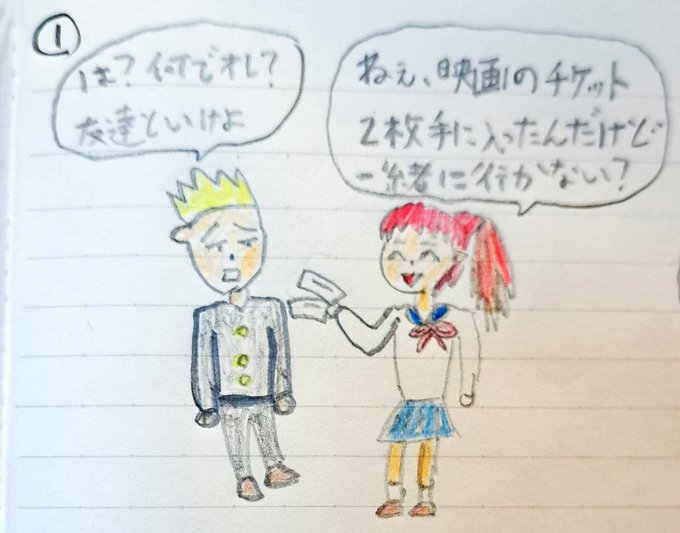 ①
ねぇ、映画のチケット
2枚手に入ったんだけど
一緒に行かない?
は?何でオレ?
友達といけよ